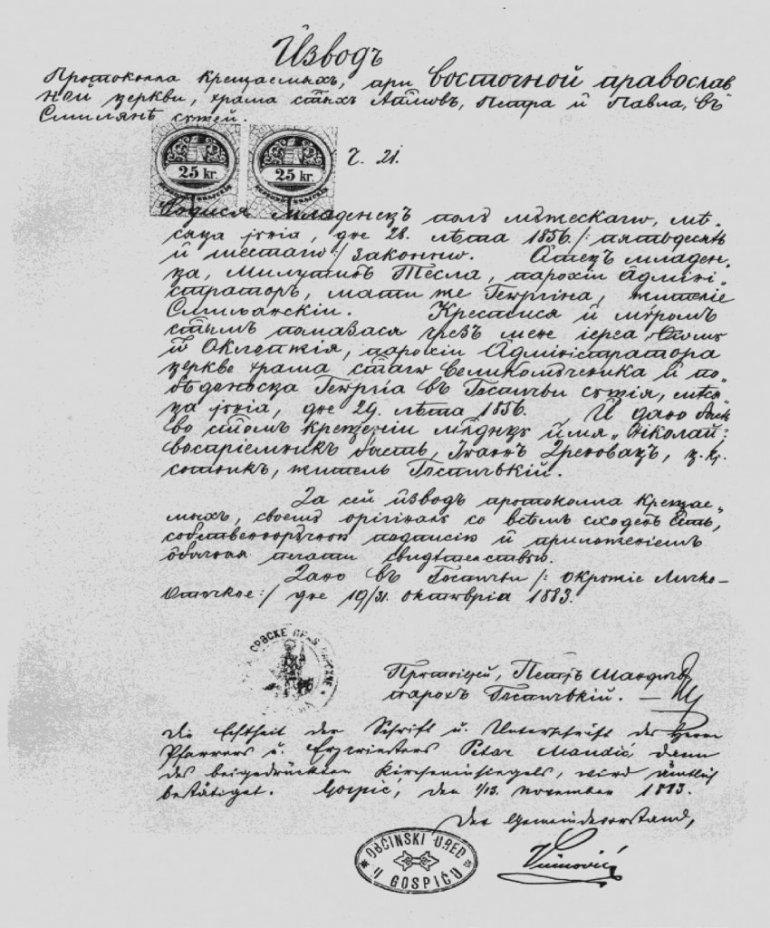 Изводъ
Протоколла крещаемыхъ, при восточной православ
ной церкви, храма стыхъ Апловъ, Петра и Павла, въ
Смилянѣ сущей.
25 kr. 25 kr.
Ч. 21.
Родися младенецъ полу мужескагѡ, мѣ„
сяца јунiа, дне 28. лѣта 1856./: пятьдесятъ
и шестагѡ:/ законнѡ. Отецъ младен„
ца, Милутинъ Тесла, парохiи Адмiнi„
страторъ, мати же Геѡргiна, жителiе
Смилянскiи. Крестися и мѵромъ
стымъ помазася чрезъ мене iереа
Оклопжiя, парохiи Адмiнiстратора
церкве храма стагѡ великомученика и по„
бѣдоносца Геѡргiа въ Госпичѣ сущiя, мѣся„
ца јунiа, дне 24. лѣта 1856. И дано бысть
во стомъ крещенiи млднцу имя „Нiколай:
воспрiемникъ бысть, Iѡаннъ Дреновацъ, ц. к.
сотникъ, житель Госпичькiй.
За сей изводъ протоколла крещае„
мыхъ, своему орiгiналу со всѣмъ сходенъ есть,
собственноручною подписiю и приложенiемъ
обычныя печати свидѣтелствую.
Дано въ Госпичьи /: окружiе Личко-
Оточкое:/ дне 19/31. октоврiа 1883.
СРВСКЕ ПРАВ
Протоiерей, Петръ Мандичь
парохъ Госпичькiй.
Die Echtheit der Schrift u. Unterschrift des Herrn
Pfarrers u. Erzpriesters Petar Mandić dann
des beigedrückten Kircheninsiegels, wird ämtlich
bestätiget. Gospić, den 1/13. November 1883.
Der Gemeindevorstand,
OBĆINSKI URED
U GOSPIĆU